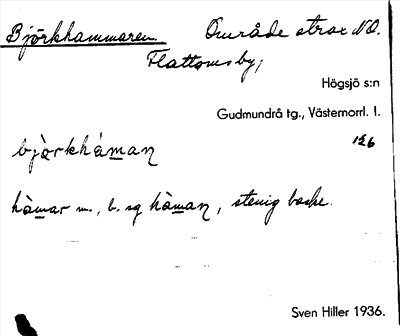 Björkhammaren Område strax NO.
Flattomsby;
Högsjö s:n
Gudmundrå tg., Västernorrl. l.
126
bjòrkhàman
hàmar m., b. sg hàman, stenig backe.
Sven Hiller 1936.